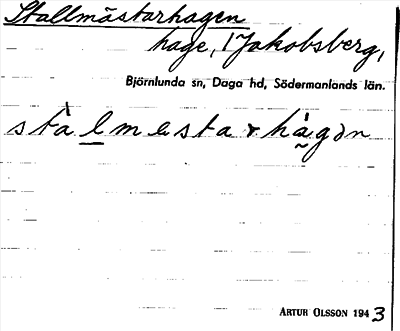 Stallmästarhagen
hage, i Jakobsberg,
Björnlunda sn, Daga hd, Södermanlands län.
stàlmestarhágən
ARTUR OLSSON 1943